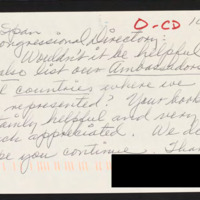 O-CD 10
Span
ongressional Directory:
Wouldn't it be helpful
also list our Ambassadors
countries where we
represented? Your book
tainly helpful and very
ch appreciated. We do
pe you continue. Than